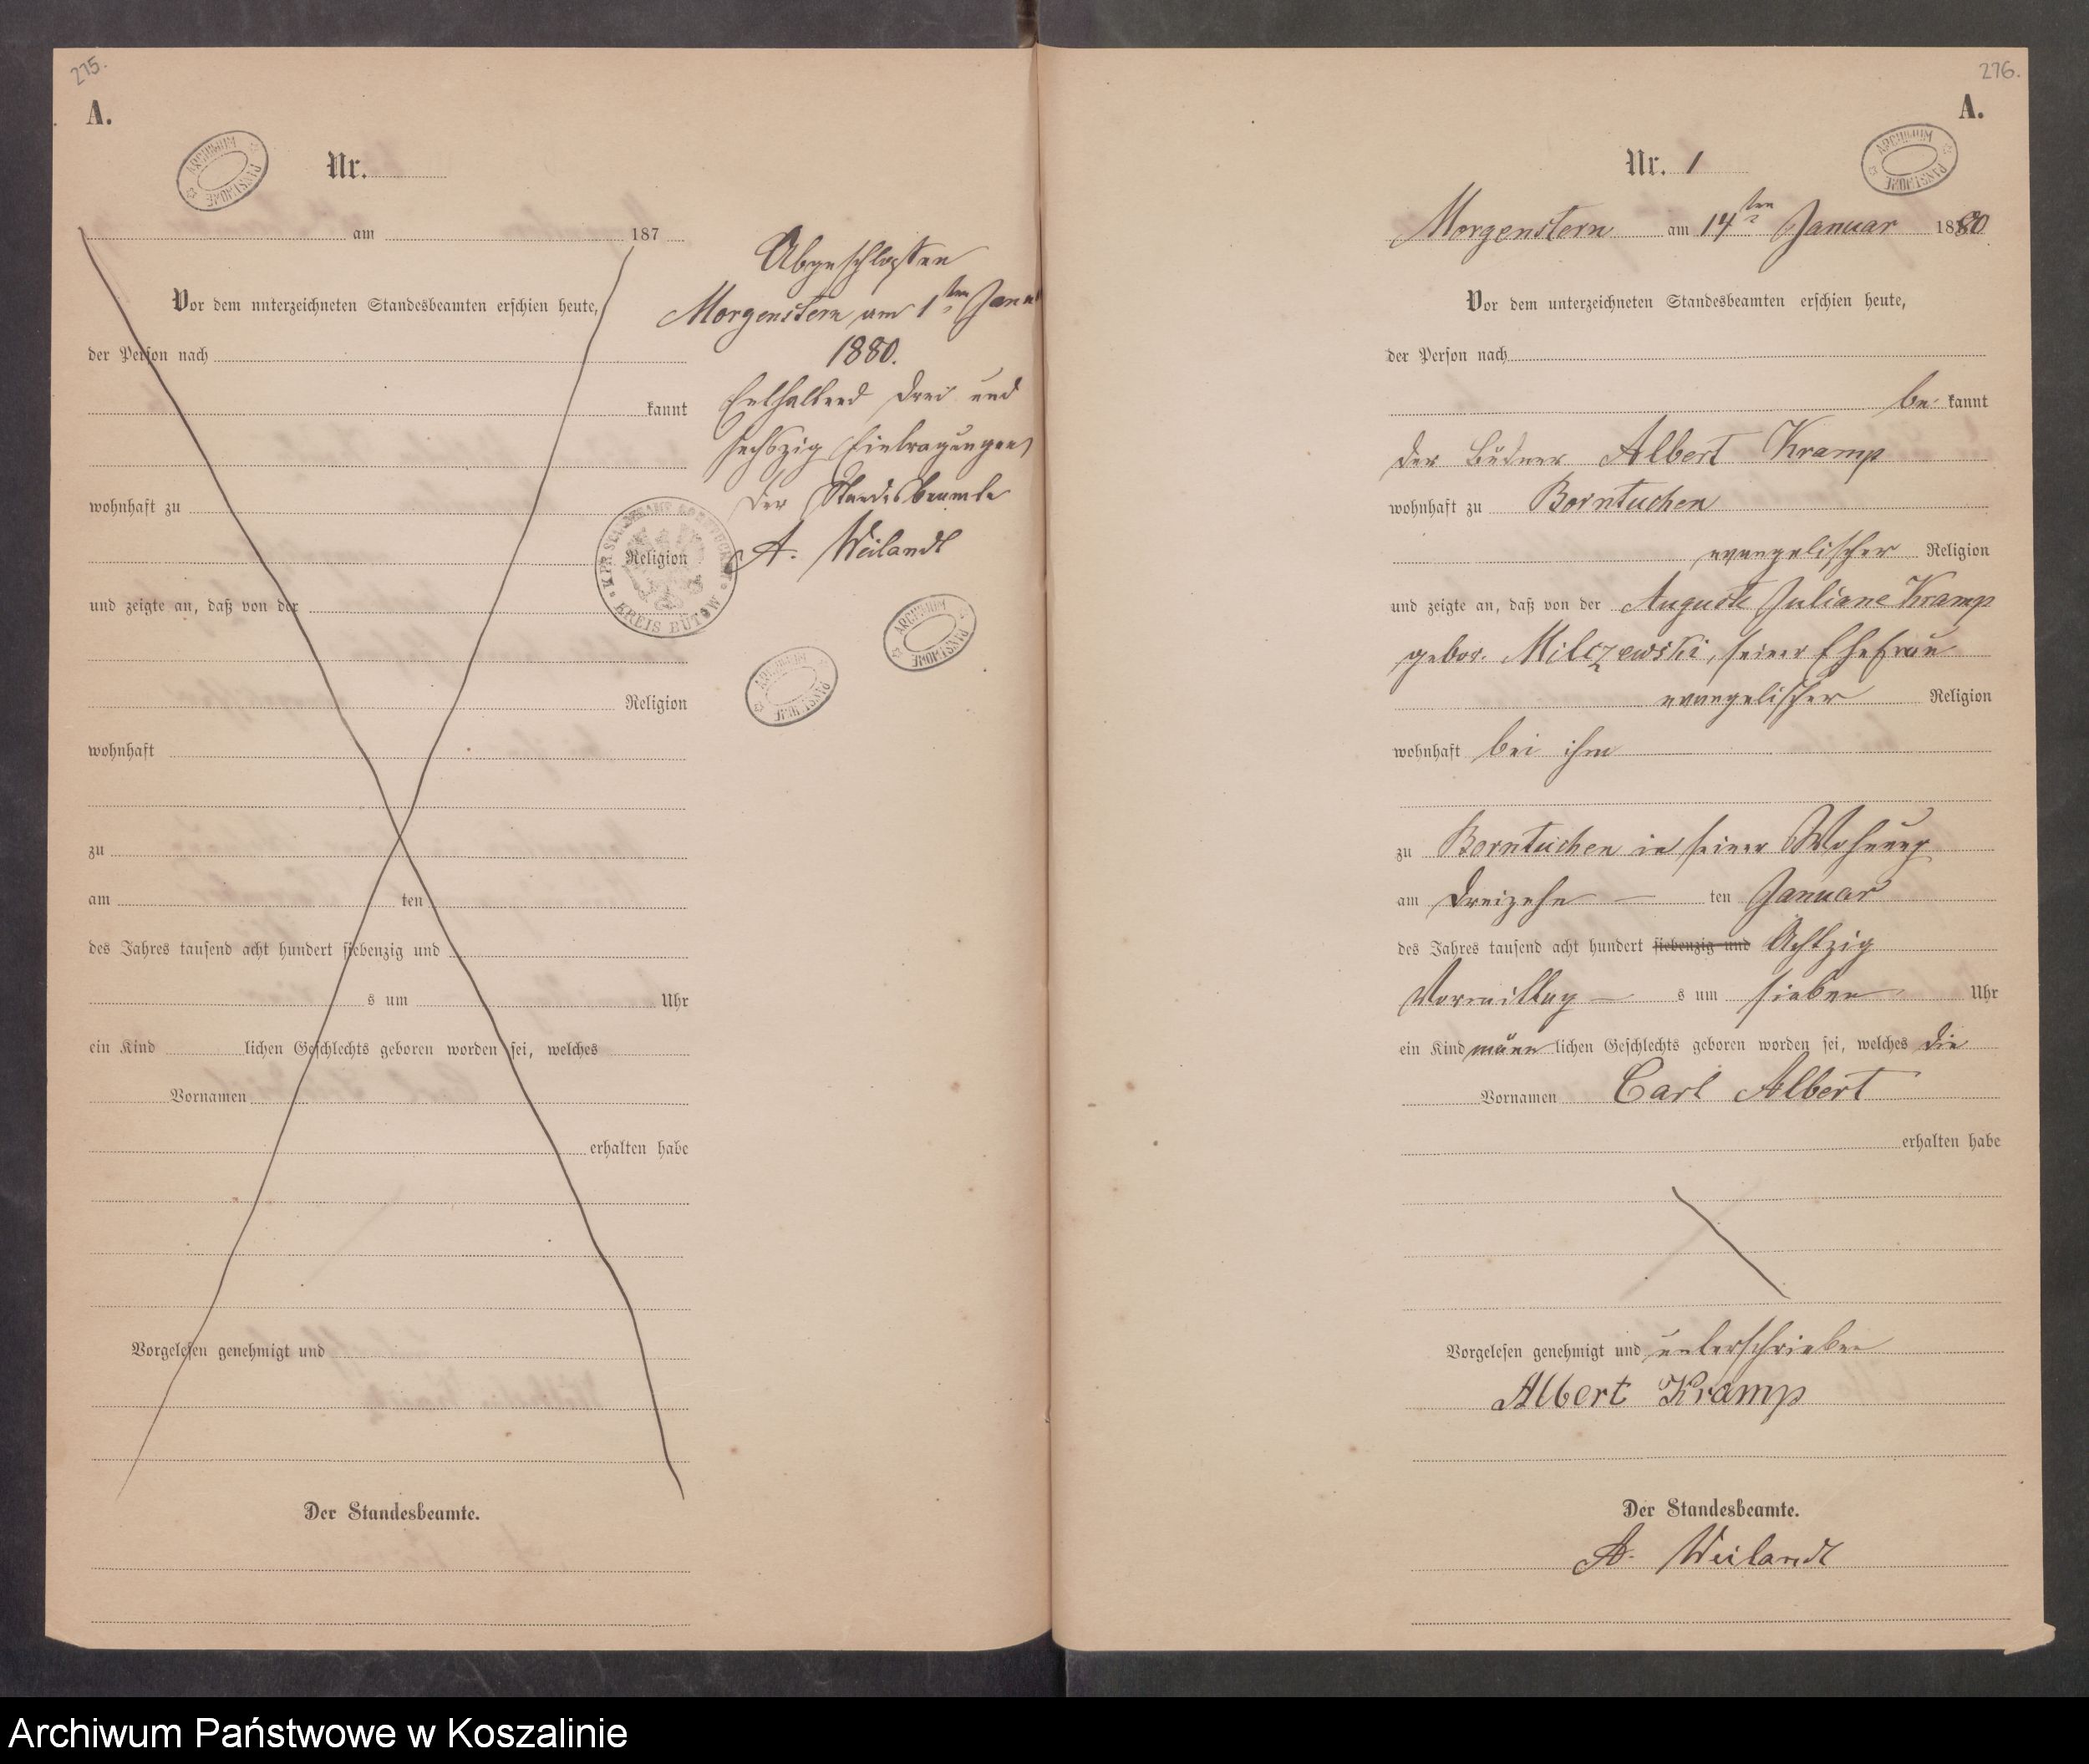 275.
A.
ARCHIWUM PAŃSTWOWE
Nr.
am 187
Vor dem unterzeichneten Standesbeamten erschien heute,
der Person nach
kannt
wohnhaft zu
Religion
und zeigte an, daß von der
Religion
wohnhaft
zu
am ten
des Jahres tausend acht hundert siebenzig und
s um Uhr
ein Kind lichen Geschlechts geboren worden sei, welches
Vornamen
erhalten habe
Vorgelesen genehmigt und
Der Standesbeamte.
Abgeschlossen
Morgenstern am 1ten Janu
1880.
Enthaltend drei und
sechszig Eintragungen
Der Standesbeamte
A. Weilandt
KREIS BÜTOW
ARCHIWUM PAŃSTWOWE
ARCHIWUM PAŃSTWOWE
276.
A.
ARCHIWUM PAŃSTWOWE
Nr. 1
Morgenstern am 14ten Januar 1880
Vor dem unterzeichneten Standesbeamten erschien heute,
der Person nach
be kannt
der Büdner Albert Kramp
wohnhaft zu Borntuchen
evangelischer Religion
und zeigte an, daß von der Auguste Juliane Kramp
gebor. Milczewski, seiner Ehefrau
evangelischer Religion
wohnhaft bei ihm
zu Borntuchen in seiner Wohnung
am dreizehn ten Januar
des Jahres tausend acht hundert siebenzig und Achtzig
Vormittag s um sieben Uhr
ein Kind männ lichen Geschlechts geboren worden sei, welches die
Vornamen Carl Albert
erhalten habe
Vorgelesen genehmigt und unterschrieben
Albert Kramp
Der Standesbeamte.
A. Weilandt
Archiwum Państwowe w Koszalinie